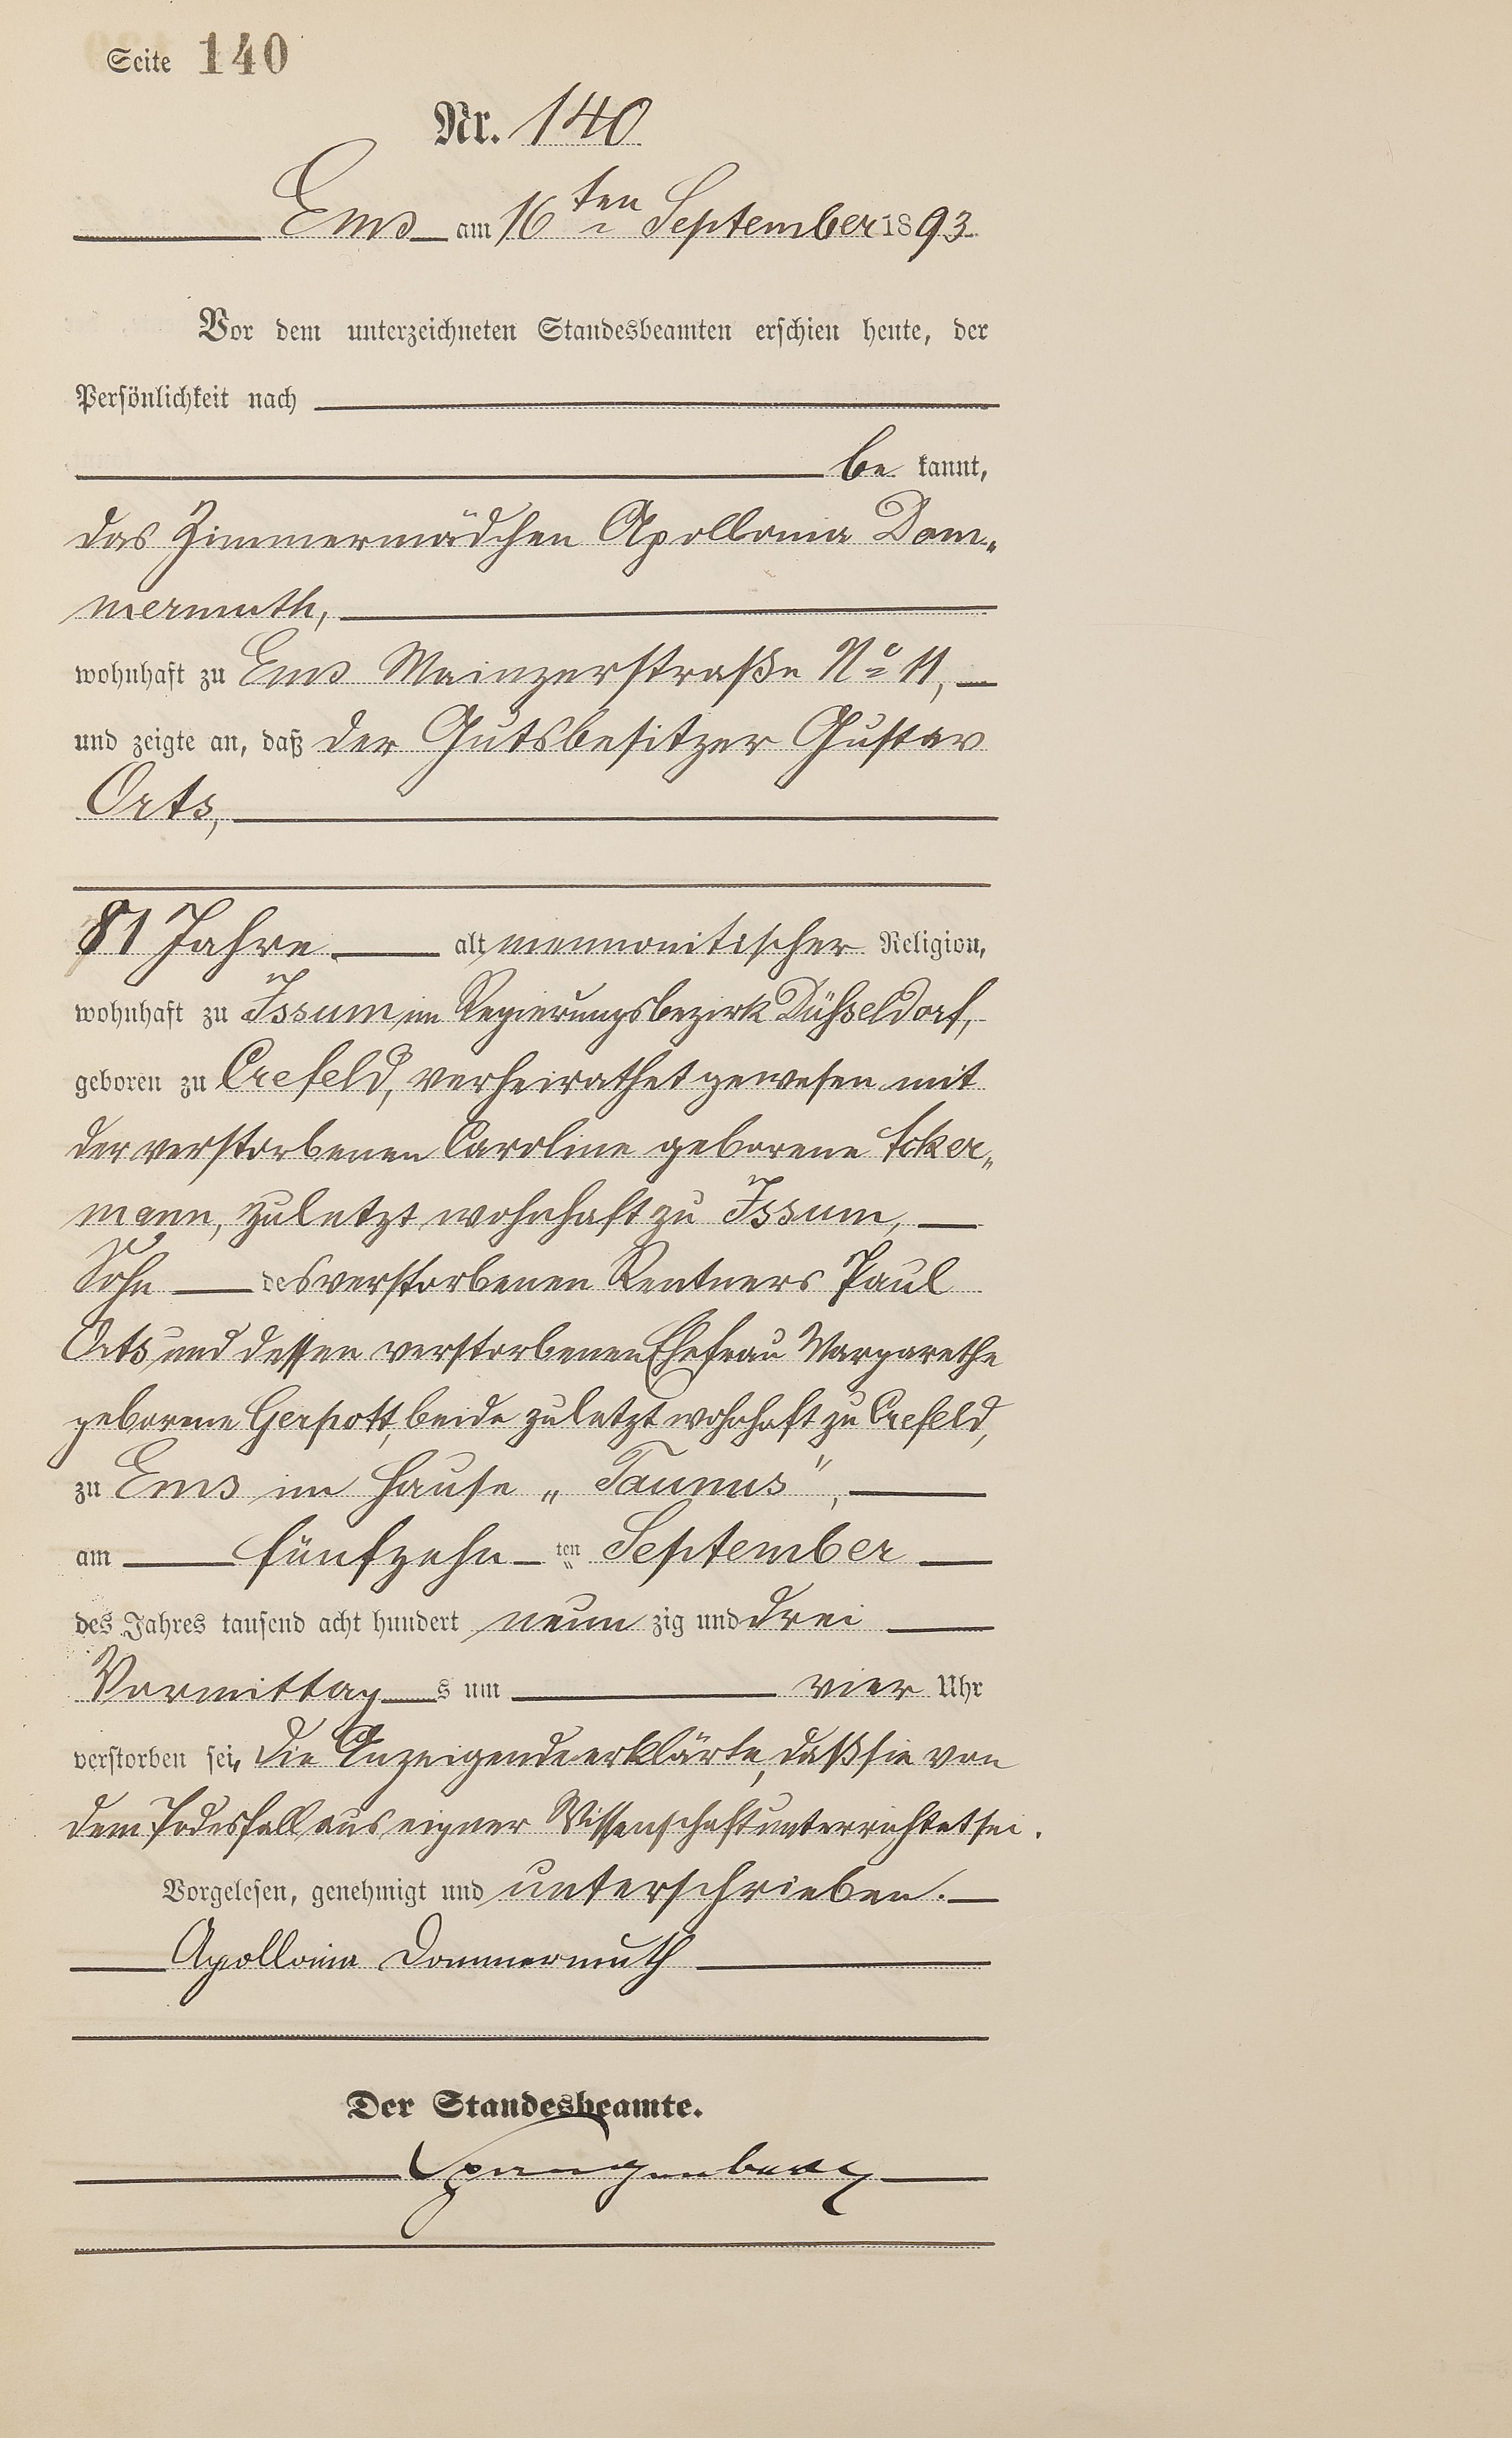 Seite 140
Nr. 140
Ems am 16ten September 1893.
Vor dem unterzeichneten Standesbeamten erschien heute, der
Persönlichkeit nach
be kannt,
das Zimmermädchen Apollonia Dom-
mermuth,
wohnhaft zu Ems Mainzerstraße No 11,
und zeigte an, daß der Gutsbesitzer Gustav
Orts,
81 Jahre alt, mennonitischer Religion,
wohnhaft zu Issum, im Regierungsbezirk Düsseldorf,
geboren zu Crefeld, verheirathet gewesen mit
der verstorbenen Caroline geborene
mann, zuletzt wohnhaft zu Issum,
Sohn des verstorbenen Rentners Paul
Orts und dessen verstorbenen Ehefrau Margarethe
geborene Gerpott, beide zuletzt wohnhaft zu Crefeld,
zu Ems im Hause „Taunus",
am fünfzehn ten September
des Jahres tausend acht hundert neun zig und drei
Vormittag s um vier Uhr
verstorben sei, die Anzeigende erklärte, daß sie von
dem Todesfall aus eigner Wissenschaft unterrichtet sei.
Vorgelesen, genehmigt und unterschrieben.
Apollonia Dommermuth
Der Standesbeamte.
Spangenberg